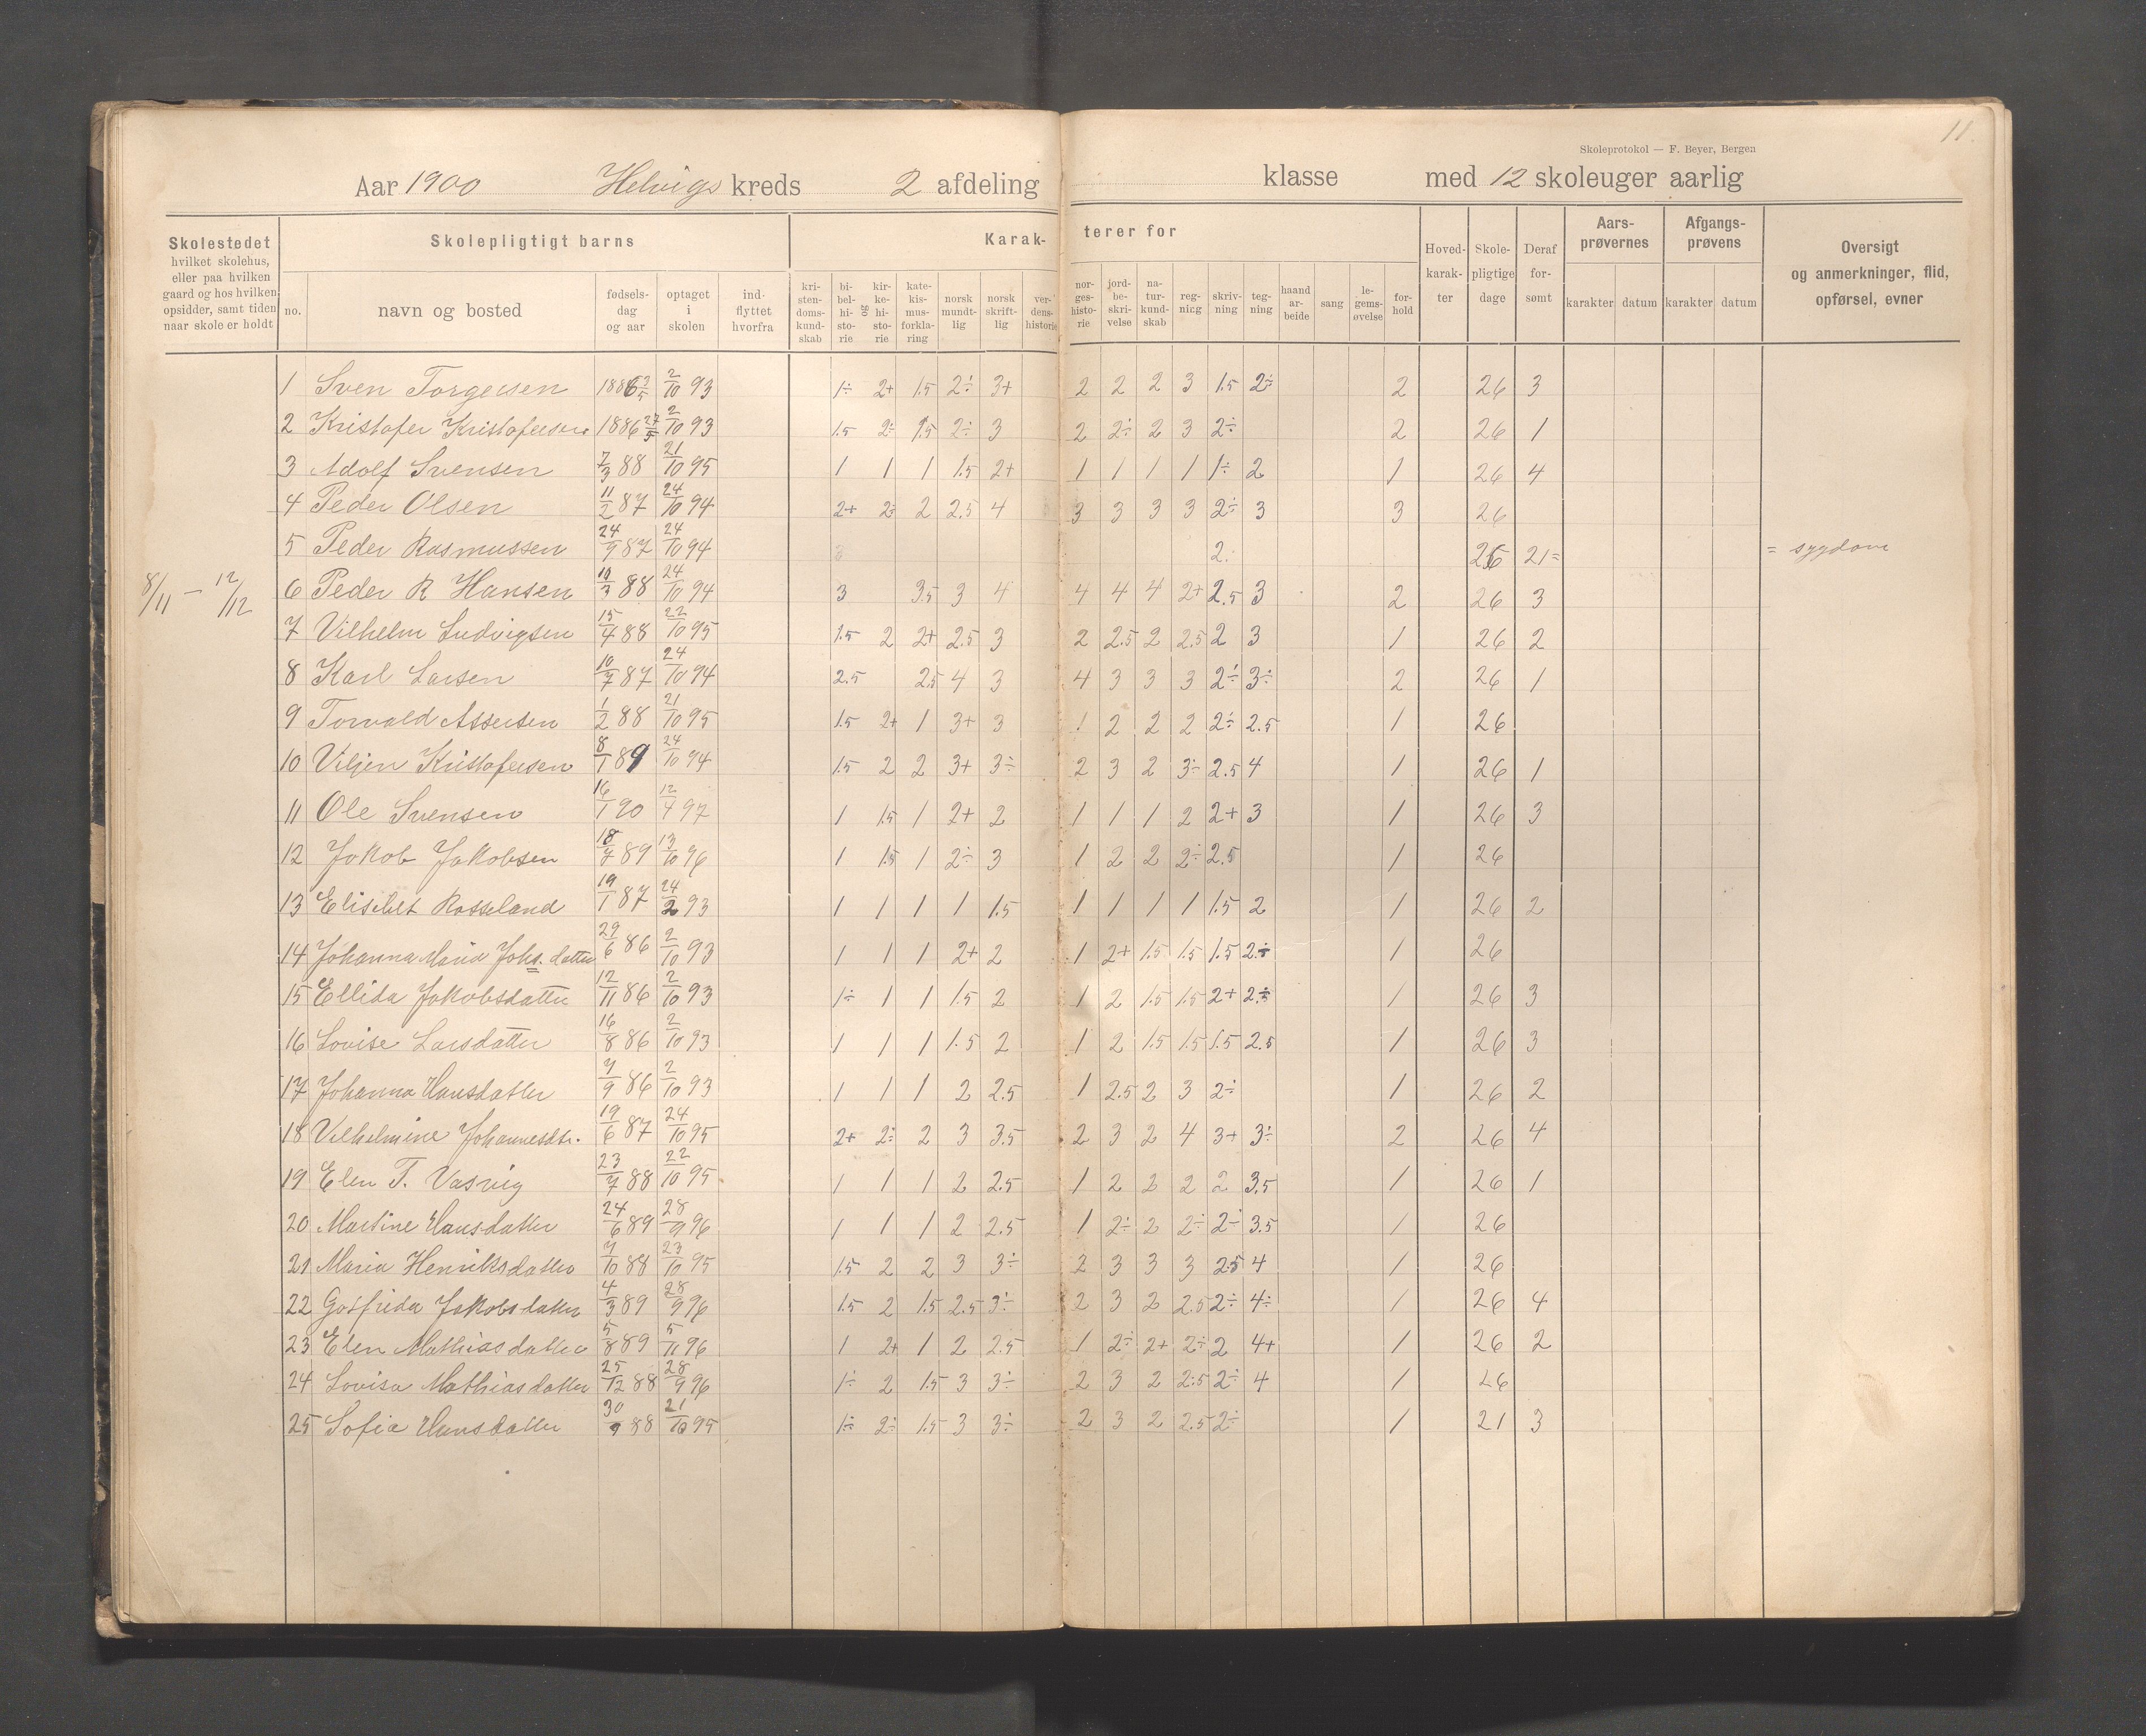 11
Skoleprotokol — F. Beyer, Bergen
Aar 1900 Helvigs kreds 2 afdeling klasse med 12 skoleuger aarlig
Skolestedet hvilket skolehus, eller paa hvilken gaard og hos hvilken opsidder, samt tiden naar skole er holdt
Skolepligtigt barns
no. navn og bosted fødsels- dag og aar optaget i skolen ind- flyttet hvorfra
Karak- terer for
kri- sten- doms- kund- skab bi- bel- hi- sto- rie og kir- ke- hi- sto- rie kate- kis- mus- forkla- ring norsk mundt- lig norsk skrift- lig ver- dens- historie nor- ges- histo- rie jord- be- skri- velse na- tur- kund- skab reg- nicg skriv- ning teg- ning haand ar- beide sang le- gems- øvelse for- hold
Hoved- karak- ter Skole- pligtige dage Deraf for- sømt
Aars- prøvernes karakter datum
Afgangs- prøvens karakter datum
Oversigt og anmerkninger, flid, opførsel, evner
8/11 – 12/12
1 Sven Torgersen 1886 2/10 93 1÷ 2+ 1.5 2÷ 3+ 2 2 2 3 1.5 2÷ 2 26 3
2 Kristofer Kristofersen 1886 27/5 2/10 93 1.5 2÷ 1.5 2÷ 3 2 2÷ 2 3 2÷ 2 26 1
3 Adolf Svensen 7/3 88 21/10 95 1 1 1 1.5 2+ 1 1 1 1 1÷ 2 1 26 4
4 Peder Olsen 11/2 87 24/10 94 2+ 2÷ 2 2.5 4 3 3 3 3 2÷ 3 3 26
5 Peder Rasmussen 24/9 87 24/10 94 2. 26 21= = sygdom
6 Peder R Hansen 10/3 88 24/10 94 3 3.5 3 4 4 4 4 2+ 2.5 3 2 26 3
7 Vilhelm Ludvigsen 15/4 88 22/10 95 1.5 2 2+ 2.5 3 2 2.5 2 2.5 2 3 1 26 2
8 Karl Larsen 10/7 87 24/10 94 2.5 2.5 4 3 4 3 3 3 2÷ 3÷ 2 26 1
9 Torvald Assersen 1/2 88 21/10 95 1.5 2+ 1 3+ 3 1 2 2 2 2÷ 2.5 1 26
10 Viljen Kristofersen 8/1 89 24/10 94 1.5 2 2 3+ 3÷ 2 3 2 3÷ 2.5 4 1 26 1
11 Ole Svensen 16/1 90 12/4 97 1 1.5 1 2+ 2 1 1 1 2 2+ 3 1 26 3
12 Jakob Jakobsen 18/7 89 13/10 96 1 1.5 1 2÷ 3 1 2 2 2÷ 2.5 1 26
13 Elisebet Rosseland 19/1 87 24/2 93 1 1 1 1 1.5 1 1 1 1 1.5 2 1 26 2
14 Johanna Maria Johs. datter 29/6 86 2/10 93 1 1 1 2+ 2 1 2+ 1.5 1.5 1.5 2÷ 1 26
15 Ellida Jakobsdatter 12/11 86 2/10 93 1÷ 1 1 1.5 2 1 2 1.5 1.5 2+ 2÷ 1 26 3
16 Lovise Larsdatter 16/8 86 2/10 93 1 1 1 1.5 2 1 2 1.5 1.5 1.5 2.5 1 26 3
17 Johanna Hansdatter 7/9 86 2/10 93 1 1 1 2 2.5 1 2.5 2 3 2÷ 1 26 2
18 Vilhelmine Johannesdtr. 19/6 87 24/10 95 2+ 2÷ 2 3 3.5 2 3 2 4 3+ 3÷ 2 26 4
19 Elen T. Vasvig 23/7 88 22/10 95 1 1 1 2 2.5 1 2 2 2 2 3.5 1 26 1
20 Martine Hansdatter 24/6 89 28/9 96 1 1 1 2 2.5 1 2÷ 2 2÷ 2÷ 3.5 1 26
21 Maria Henriksdatter 7/10 88 23/10 95 1.5 2 2 3 3÷ 2 3 3 3 2.5 4 1 26
22 Gotfrida Jakobsdatter 4/3 89 28/9 96 1.5 2 1.5 2.5 3÷ 2 3 2 2.5 2÷ 4÷ 1 26 4
23 Elen Mathiasdatter 5/8 89 5/11 96 1 2+ 1 2 2.5 1 2÷ 2+ 2÷ 2 4+ 1 26 2
24 Lovisa Mathiasdatter 25/12 88 28/9 96 1÷ 2 1.5 3 3÷ 2 3 2 2.5 2÷ 4 1 26
25 Sofia Hansdatter 30/9 88 21/10 95 1÷ 2÷ 1.5 3 3÷ 2 3 2 2.5 2÷ 1 21 3